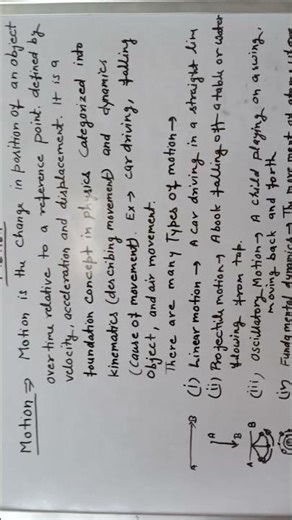 Motion ⇒ Motion is the change in position of an object
over time relative to a reference point. defined by
velocity, acceleration and displacement. It is a
foundation concept in physics categorized into
kinematics (describing movement) and dynamics
(cause of movement). Ex → car driving, falling
object, and air movement.
There are many Types of motion →
(i) Linear motion → A car driving in a straight lin
(ii) Projectile motion → A book falling off a table or water
flowing from tap.
(iii) Oscillatory Motion → A child playing on a swing,
moving back and forth
(iv) Fundamental dynamics → The movement of atoms
A B
A
B
A B